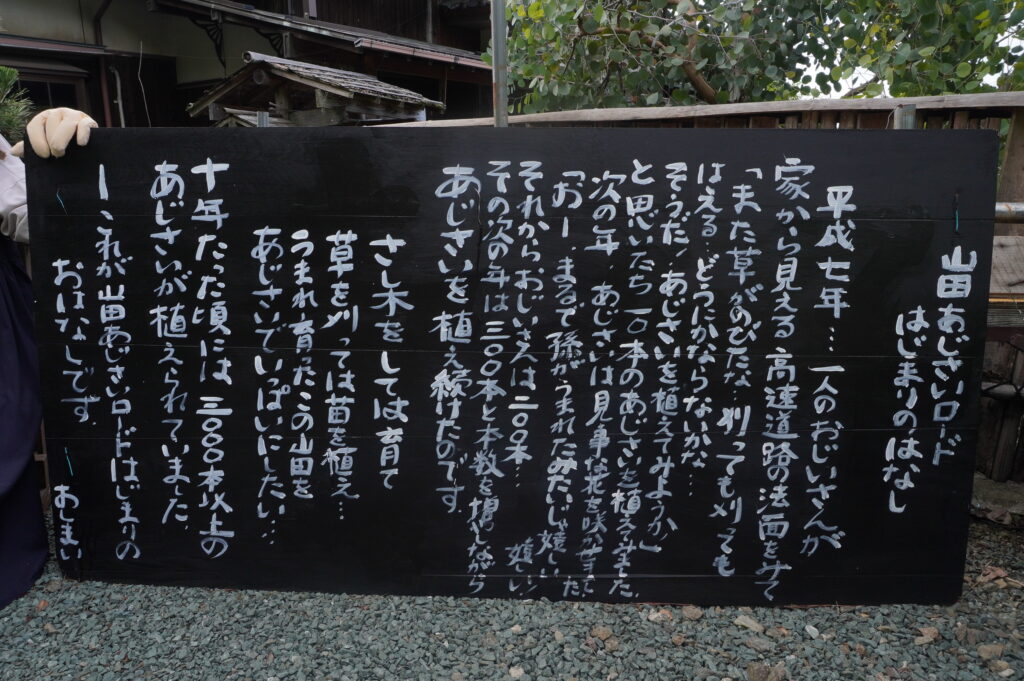 山田あじさいロード
はじまりのはなし
平成七年…一人のおじいさんが
家から見える高速道路の法面をみて
「また草がのびたな…刈っても刈っても
はえる…どうにかならないかな
そうだっあじさいを植えてみようか」
と思いたち一〇本のあじさいを植えてみました
次の年、あじさいは見事な花を咲かせました
「おー…まるで孫がうまれたみたいじゃ嬉しい嬉しい」
それからおじいさんは二〇〇本…
その次の年は三〇〇本と本数を増やしながら
あじさいを植え続けたのです。
さし木をしては育て
草を刈っては苗を植え…
うまれ育ったこの山田を
あじさいでいっぱいにしたい…
十年たった頃には三〇〇〇本以上の
あじさいが植えられていました
ーこれが山田あじさいロードはじまりの
おはなしです。
おしまい